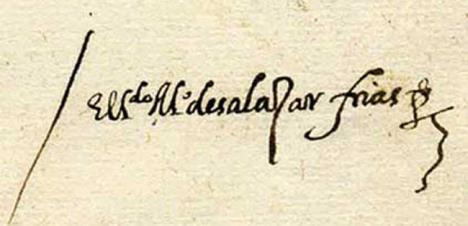 Ellᵈᵒ Alº desalazar frias